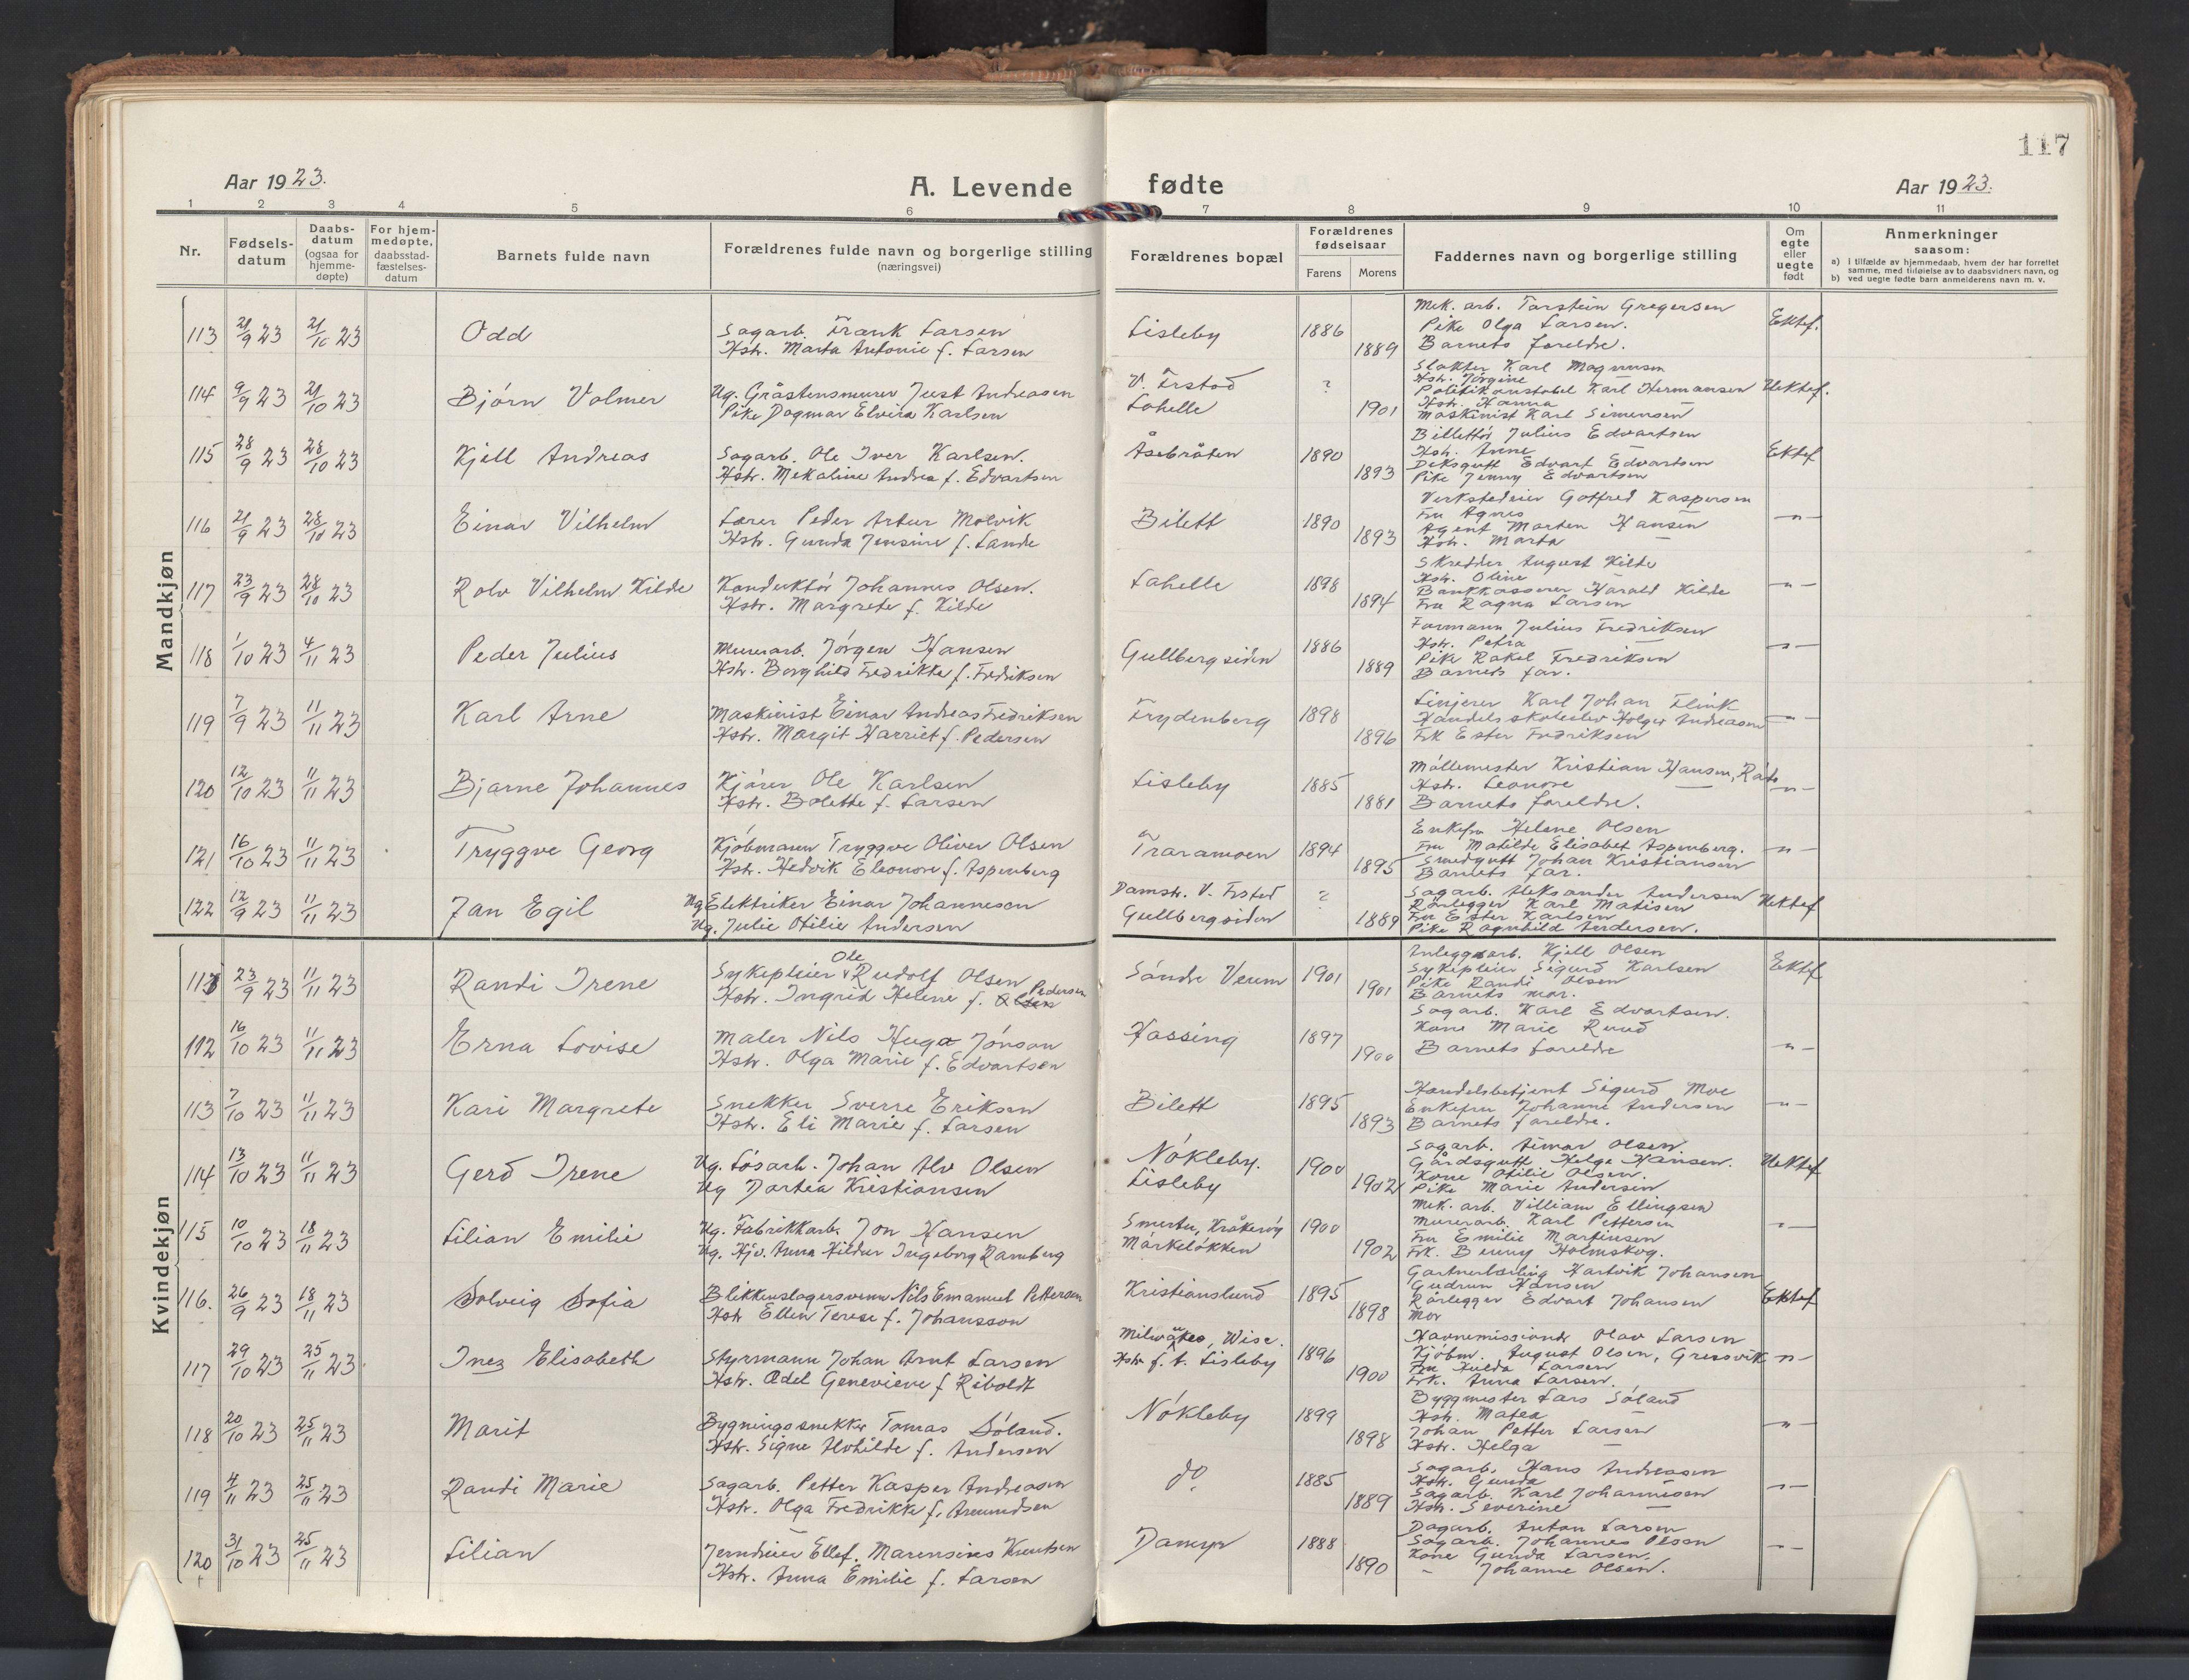 117
Aar 1923.
A. Levende fødte
Aar 1923.
1 2 3 4 5 6 7 8 9 10 11
Nr.
Fødsels-
datum
Daabs-
datum
(ogsaa for
hjemme-
døpte)
For hjem-
medøpte,
daabsstad-
fæstelses-
datum
Barnets fulde navn
Forældrenes fulde navn og borgerlige stilling
(næringsvei)
Forældrenes bopæl
Forældrenes
fødselsaar
Farens Morens
Faddernes navn og borgerlige stilling
Om
egte
eller
uegte
født
Anmerkninger
saasom:
a) I tilfælde av hjemmedaab, hvem der har forrettet
samme, med tilføielse av to daabsvidners navn, og
b) ved uegte fødte barn anmelderens navn m. v.
Mandkjøn
113 21/9 23 21/10 23 Odd
Sagarb. Frank Larsen
Hstr. Marta Antonie f. Larsen
Lisleby 1886 1889
Mek. arb. Torstein Gregersen
Pike Olga Larsen.
Barnets foreldre.
Ektef.
114 9/9 23 21/10 23 Bjørn Volmer
Ug. Gråstensmurer Just Andreasen
Pike Dagmar Elvira Karlsen
V. Frstad
Lahelle
? 1901
Slakter Karl Magnusen
Hstr. Jørgine
Politikonstabel Karl Hermansen
Hstr. Hanna
Maskinist Karl Simensen
Uektef.
115 28/9 23 28/10 23 Kjell Andreas
Sagarb. Ole Iver Karlsen.
Hstr. Mekaline Andrea f. Edvartsen
Åsebråten 1890 1893
Billettør Julius Edvartsen
Hstr. Anne —
Deksgutt Edvart Edvartsen
Pike Jenny Edvartsen
Ektef
116 21/9 23 28/10 23 Einar Vilhelm
Lærer Peder Artur Molvik
Hstr. Gunda Jensine f. Lande
Bilett 1890 1893
Verkstedeier Gotfred Kaspersen
Fru Agnes —
Agent Marten Hansen
Hstr. Marta —
— " —
117 23/9 23 28/10 23 Rolv Vilhelm Kilde
Konduktør Johannes Olsen.
Hstr. Margrete f. Kilde
Lahelle 1898 1894
Skredder August Kilde
Hstr. Oline —
Bankkasserer Harald Kilde
Fru Ragna Larsen
— " —
118 1/10 23 4/11 23 Peder Julius
Murerarb. Jørgen Hansen
Hstr. Borghild Fredrikke f. Fredriksen
Gullbergsiden 1886 1889
Formann Julius Fredriksen
Hstr. Petra —
Pike Rakel Fredriksen
Barnets far.
— " —
119 7/9 23 11/11 23 Karl Arne
Maskinist Einar Andreas Fredriksen
Hstr. Margit Harriet f. Pedersen
Frydenberg 1898 1896
Linjerer Karl Johan Flink
Handelsskoleelev Holger Andreasen
Frk Ester Fredriksen
— " —
120 12/10 23 11/11 23 Bjarne Johannes
Kjører Ole Karlsen
Hstr. Bolette f. Larsen
Lisleby 1885 1881
Møllemester Kristian Hansen, Råde
Hstr. Leonore —
Barnets foreldre.
— " —
121 16/10 23 11/11 23 Tryggve Georg
Kjøbmann Tryggve Oliver Olsen
Hstr. Hedvik Eleonore f. Aspenberg
Traramoen 1894 1895
Enkefru Helene Olsen
Fru Matilde Elisabet Aspenberg.
Smedgutt Johan Kristiansen
Barnets far.
— " —
122 12/9 23 11/11 23 Jan Egil
Ug Elektriker Einar Johannesen
Ug. Julie Otilie Andersen
Damstr. V. Frsted
Gullbergsiden
? 1889
Sagarb. Aleksander Andersen
Rørlegger Karl Matisen
Fru Ester Karlsen
Pike Ragnhild Andersen.
Uektef
Kvindekjøn
111 23/9 23 11/11 23 Randi Irene
Ole
Sykepleier v Rudolf Olsen
Hstr. Ingrid Helene f. Olsen Pedersen
Søndre Verum 1901 1901
Inleggsarb. Kjell Olsen
Sykepleier Sigurd Karlsen
Pike Randi Olsen
Barnets mor.
Ektef
112 16/10 23 11/11 23 Erna Lovise
Maler Nils Hugo Jönson
Hstr. Olga Marie f. Edvartsen
Hassing 1897 1900
Sagarb. Karl Edvartsen.
Kone Marie Ruud
Barnets foreldre
— " —
113 7/10 23 11/11 23 Kari Margrete
Snekker Sverre Eriksen
Hstr. Eli Marie f. Larsen
Bilett 1895 1893
Handelsbetjent Sigurd Moe
Enkefru Johanne Andersen
Barnets foreldre.
— " —
114 13/10 23 11/11 23 Gerd Irene
Ug. Løsarb. Johan Alv Olsen
Ug Dortea Kristiansen
Nøkleby.
Lisleby
1900 1902
Sagarb. Aimar Olsen.
Gårdsgutt Helge Hansen.
Kone Otilie Olsen.
Pike Marie Andersen
Uektef
115 10/10 23 18/11 23 Lilian Emilie
Ug. Fabrikkarb. Jon Hansen
Ug. Hjv. Anna Hildur Ingeborg Ramberg
Smertu, Kråkerøy
Mørkeløkken
1900 1902
Mek. arb. Villiam Ellingsen
Murerarb. Karl Pettersen
Fru Emilie Martinsen
Frk. Benny Holmskog.
— " —
116. 26/9 23 18/11 23 Solveig Sofia
Blikkenslagersvenn Nils Emanuel Petterson
Hstr Ellen Terese f. Johansson
Kristianslund 1895 1898
Gartnerlærling Hartvik Johansen
Gudrun Hansen
Rørlegger Edvart Johansen
Mor
Ektef
117 29/10 23 25/11 23 Inez Elisabeth
Styrmann Johan Arnt Larsen
Hstr. Adel Genevieve f Riboldt
Milwaukee, Wisc.
Hstr f. t. Lisleby
1896 1900
Havnemissionær Olav Larsen
Kjøbm. August Olsen, Gressvik
Fru Hulda Larsen
Frk. Anna Larsen.
— " —
118 20/10 23 25/11 23 Marit
Bygningssnekker Tomas Søland.
Hstr. Signe Alvhilde f. Andersen
Nøkleby 1899 1898
Byggmester Lars Søland
Hstr. Matea —
Johan Petter Larsen
Hstr. Helga —
— " —
119 4/11 23 25/11 23 Randi Marie
Sagarb. Petter Kasper Andreasen
Hstr. Olga Fredrikke f. Amundsen
do. 1885 1889
Sagarb. Hans Andreasen
Hstr. Gunda —
Sagarb. Karl Johannesen
Hstr. Severine —
— " —
120 31/10 23 25/11 23 Lilian
Jerndreier Ellef. Marensius Knutsen
Hstr. Anna Emilie f. Larsen
Damyr 1888 1890
Dagarb. Anton Larsen
Sagarb. Johannes Olsen
Kone Gunda Larsen.
— Johanne Olsen.
— " —